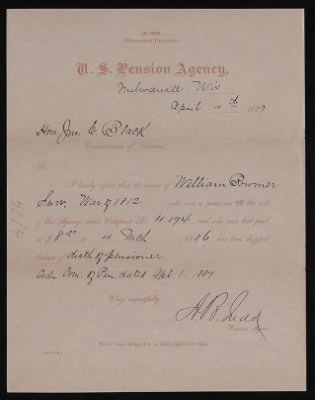 U. S. Pension Agency,
Milwaukee Wis
April 4th 1887
Hon Jno. C. Black
Commissioner of Pensions.
Sir:
I hereby report that the name of William Powner
Surv. War of 1812 who was a pensioner on the rolls
of this Agency under Certificate No. 4174 and who was last paid
at $8 to 4 Mch, 1886 has been dropped
because of death of pensioner.
Order Com. of Pen. dated Apl. 1. 1887
Very respectfully,
A. B. Judd
Pension Agent.
4174